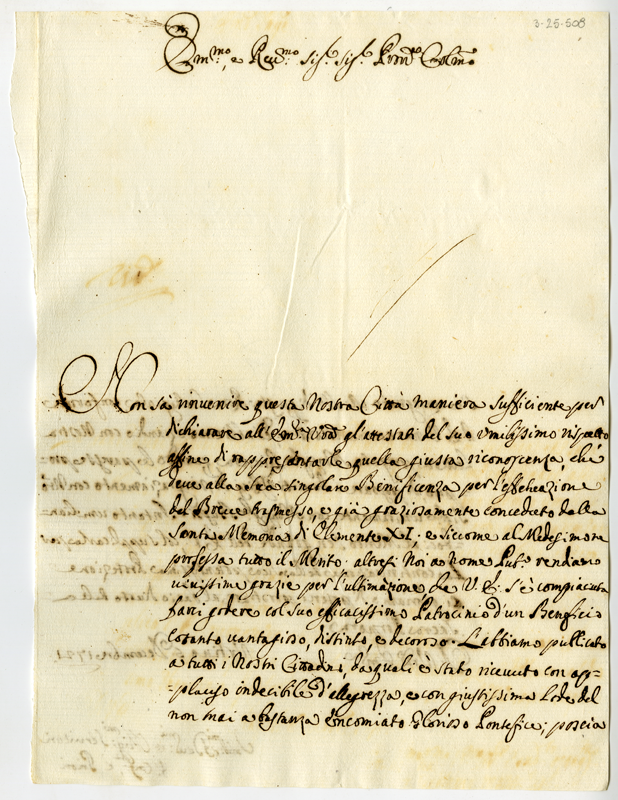 3-25-508
Em.mo, e Reu.mo Sig.r Sig.r Pron Col.mo
Non sa rinvenire questa Nostra Città maniera sufficiente per
dichiarare all'Em.za Vra gl'attestati del suo umilissimo rispetto
affine di rappresentarle quella giusta riconoscenza, che
deve alla Sua singolare Benificenza per l'espedizione
del Breve trasmesso, e già graziosamente conceduto dalla
Santa Memoria di Clemente XI; e siccome al Medesimo si
professa tutto il Merito altresì Noi a nome Pub.o rendiamo
vivissime grazie per l'ultimazione che V. E. s'è compiaciuta
farci godere col suo efficacissimo Patrocinio d'un Beneficio
cotanto vantagioso, distinto, e decoroso. L'abbiamo publicato
a tutti i Nostri Cittadini, da quali è stato ricevuto con ap=
=plauso indecibile d'allegrezza, e con giustissima Lode del
non mai a bastanza encomiato Glorioso Pontefice; poscia